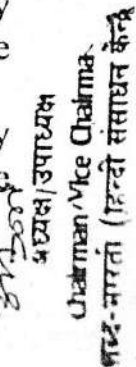 अध्यक्ष/उपाध्यक्ष
Chairman/Vice Chairma
शब्द-भारती (हिन्दी संसाधन केन्द्र